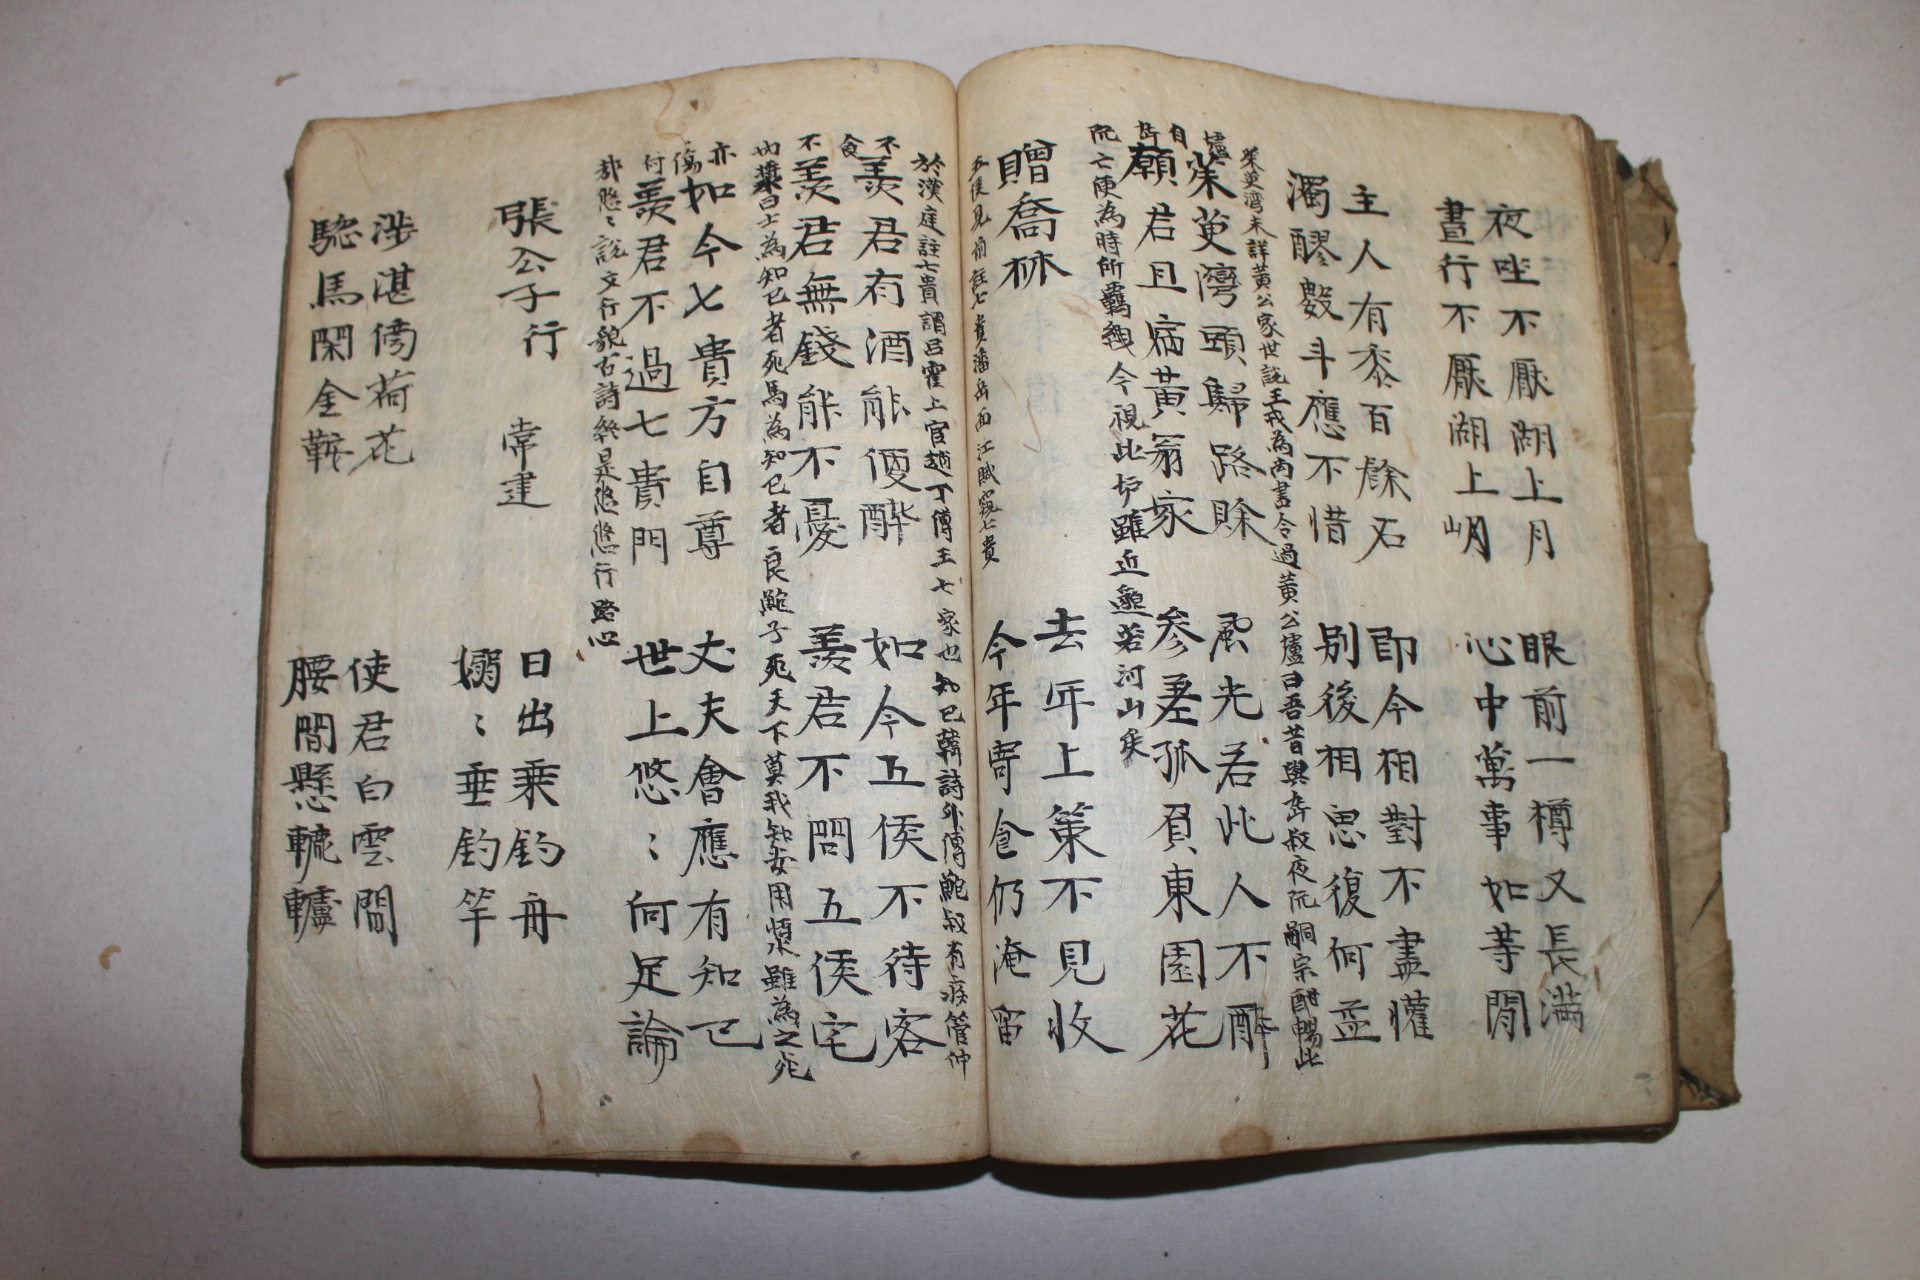 夜坐不厭湖上月
晝行不厭湖上岄
眼前一樽又長滿
心中萬事如等閒
主人有黍百餘石
濁醪數斗應不惜
即今相對不盡懽
别後相思復何益
茱萸灣未詳黃公家世說王戎為尚書令過黃公壚曰吾昔與嵇叔夜阮嗣宗酣暢此
壚
茱萸灣頭歸路賖
願君且宿黃翁家
風光若此人不醉
參差孤負東園花
自嵇
阮亡便為時所羈紲今視此坊雖近邈若河山矣
贈喬林
去年上策不見收
今年寄食仍淹留
五侯見前註七貴潘岳西江賦窺七貴
於漢庭註七貴謂呂霍上官趙丁傅王七家也知己韓詩外傳鮑叔有疾管仲
不食不
羨君有酒能便醉
羨君無錢能不憂
如今五侯不待客
羨君不問五侯宅
内漿曰士為知己者死馬為知己者良鮑子死天下莫我知安用雖為之死
亦傷何
如今七貴方自尊
羨君不過七貴門
丈夫會應有知己
世上悠〻何足論
都悠〻說文行貌古詩終是悠悠行路心
張公子行 常建
日出乘釣舟
嫋〻垂釣竿
涉湛傍荷花
驄馬閑金鞍
使君白雲間
腰間懸轆轤